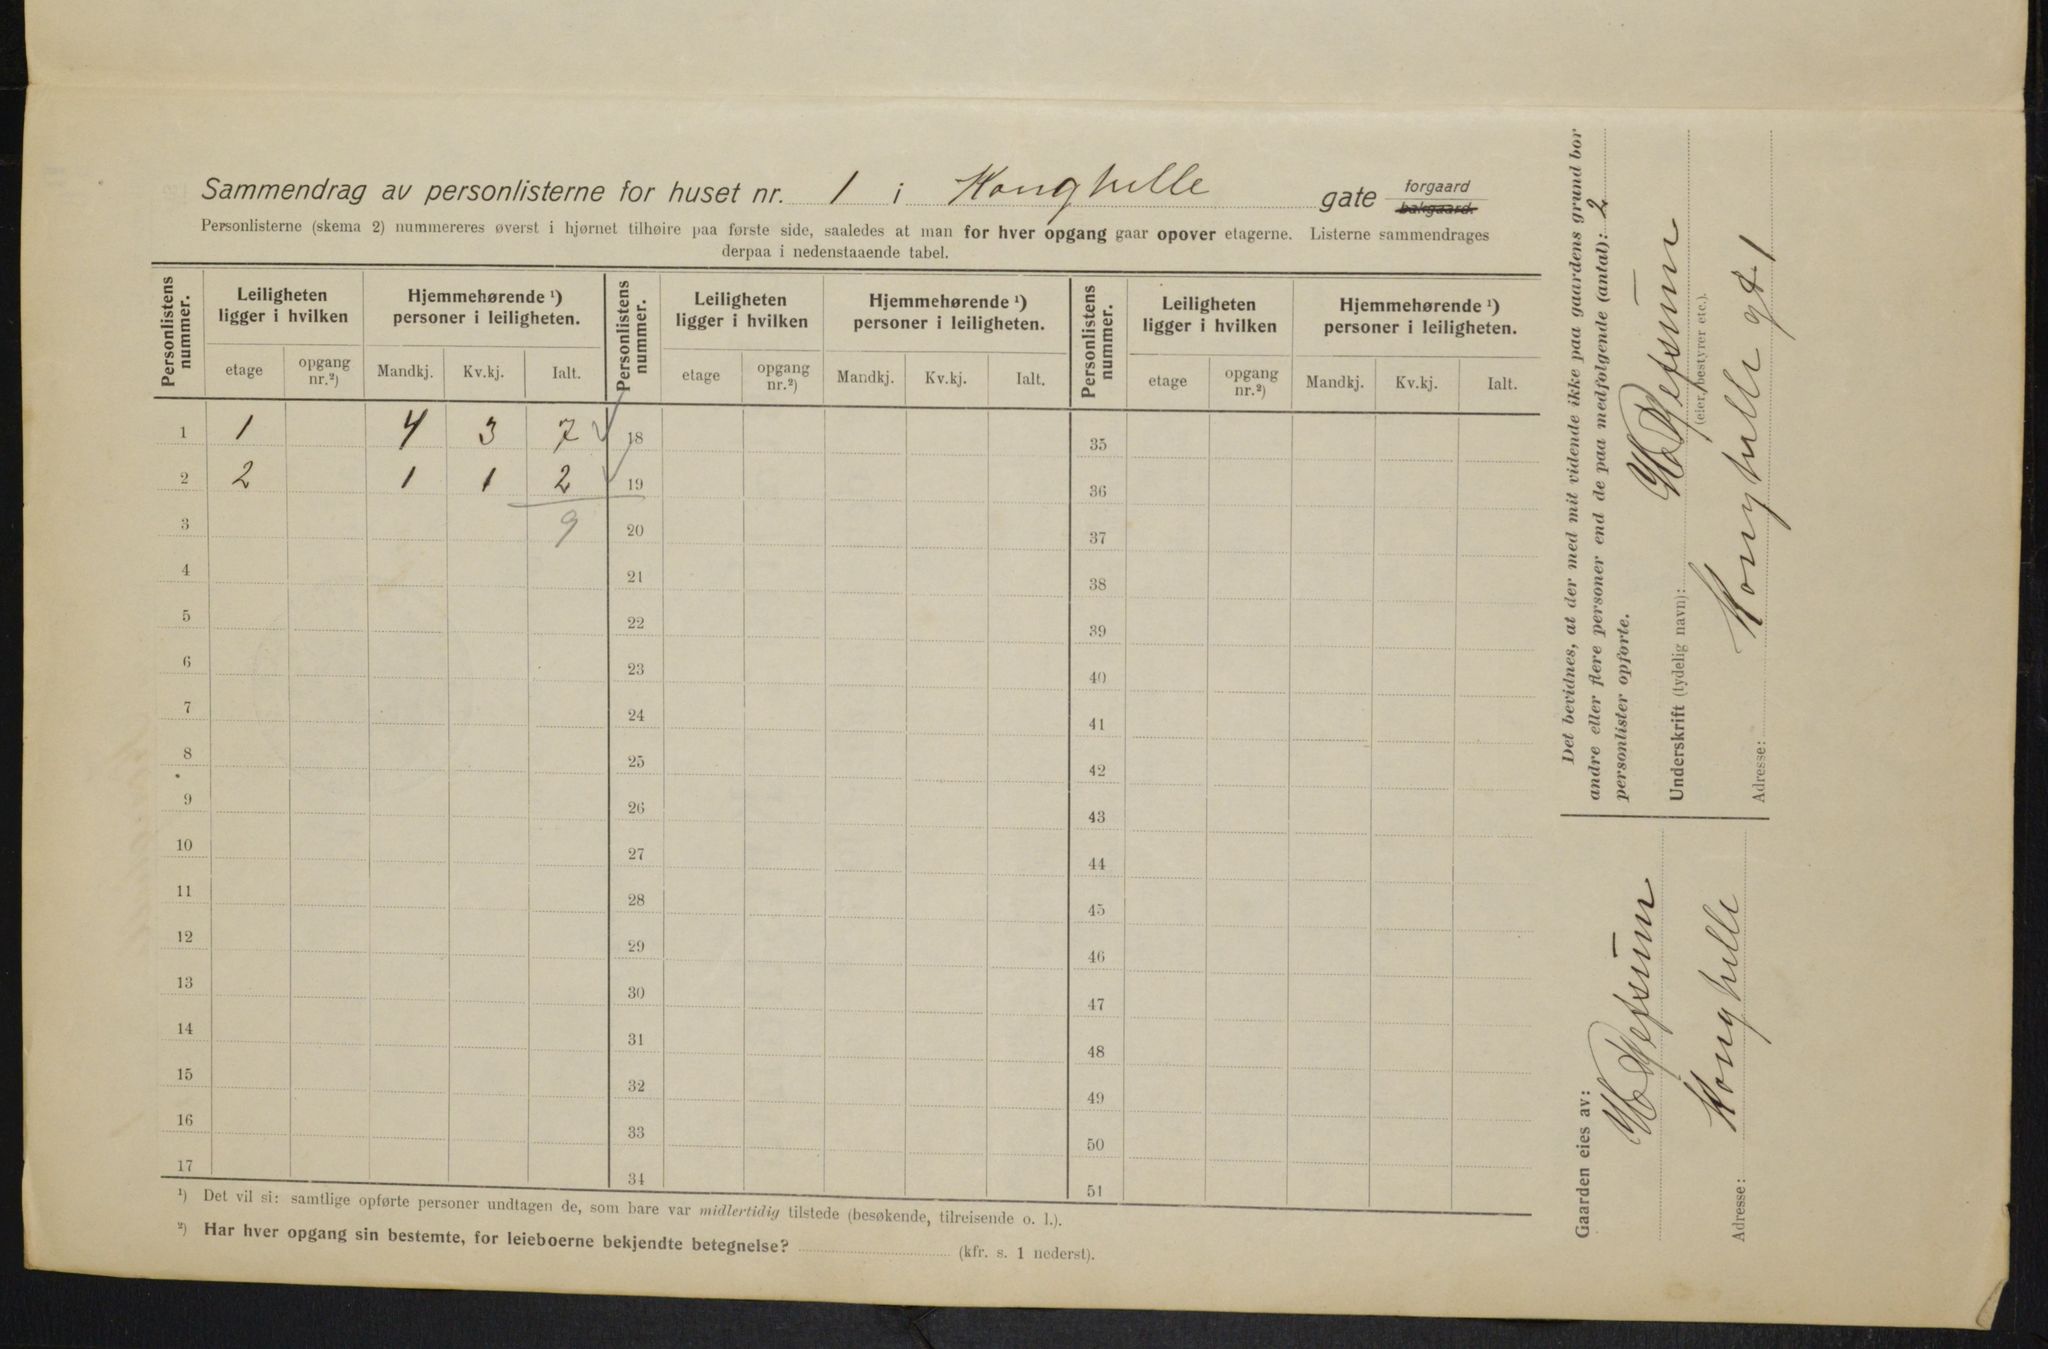 Sammendrag av personlisterne for huset nr. 1 i Konghelle gate forgaard bakgaard.
Personlisterne (skema 2) nummereres øverst i hjørnet tilhøire paa første side, saaledes at man for hver opgang gaar opover etagerne. Listerne sammendrages
derpaa i nedenstaaende tabel.
Personlistens nummer. Leiligheten ligger i hvilken Hjemmehørende ¹) personer i leiligheten. Personlistens nummer. Leiligheten ligger i hvilken Hjemmehørende ¹) personer i leiligheten. Personlistens nummer. Leiligheten ligger i hvilken Hjemmehørende ¹) personer i leiligheten.
etage opgang nr.²) Mandkj. Kv.kj. Ialt. etage opgang nr.²) Mandkj. Kv.kj. Ialt. etage opgang nr.²) Mandkj. Kv.kj. Ialt.
1 1 4 3 7 18 35
2 2 1 1 2 19 36
3 9 20 37
4 21 38
5 22 39
6 23 40
7 24 41
8 25 42
9 26 43
10 27 44
11 28 45
12 29 46
13 30 47
14 31 48
15 32 49
16 33 50
17 34 51
¹) Det vil si: samtlige opførte personer undtagen de, som bare var midlertidig tilstede (besøkende, tilreisende o. l.).
²) Har hver opgang sin bestemte, for leieboerne bekjendte betegnelse? (kfr. s. 1 nederst).
Det bevidnes, at der med mit vidende ikke paa gaardens grund bor
andre eller flere personer end de paa medfølgende (antal): 2
personlister opførte.
Underskrift (tydelig navn):
(eier, bestyrer etc.).
Adresse: Konghelle gt 1
Gaarden eies av:
Adresse: Konghelle